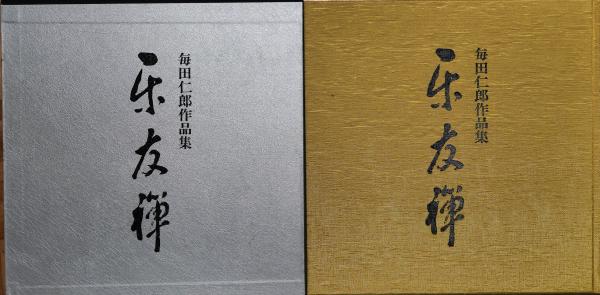 毎田仁郎作品集
乐友禅
毎田仁郎作品集
乐友禅